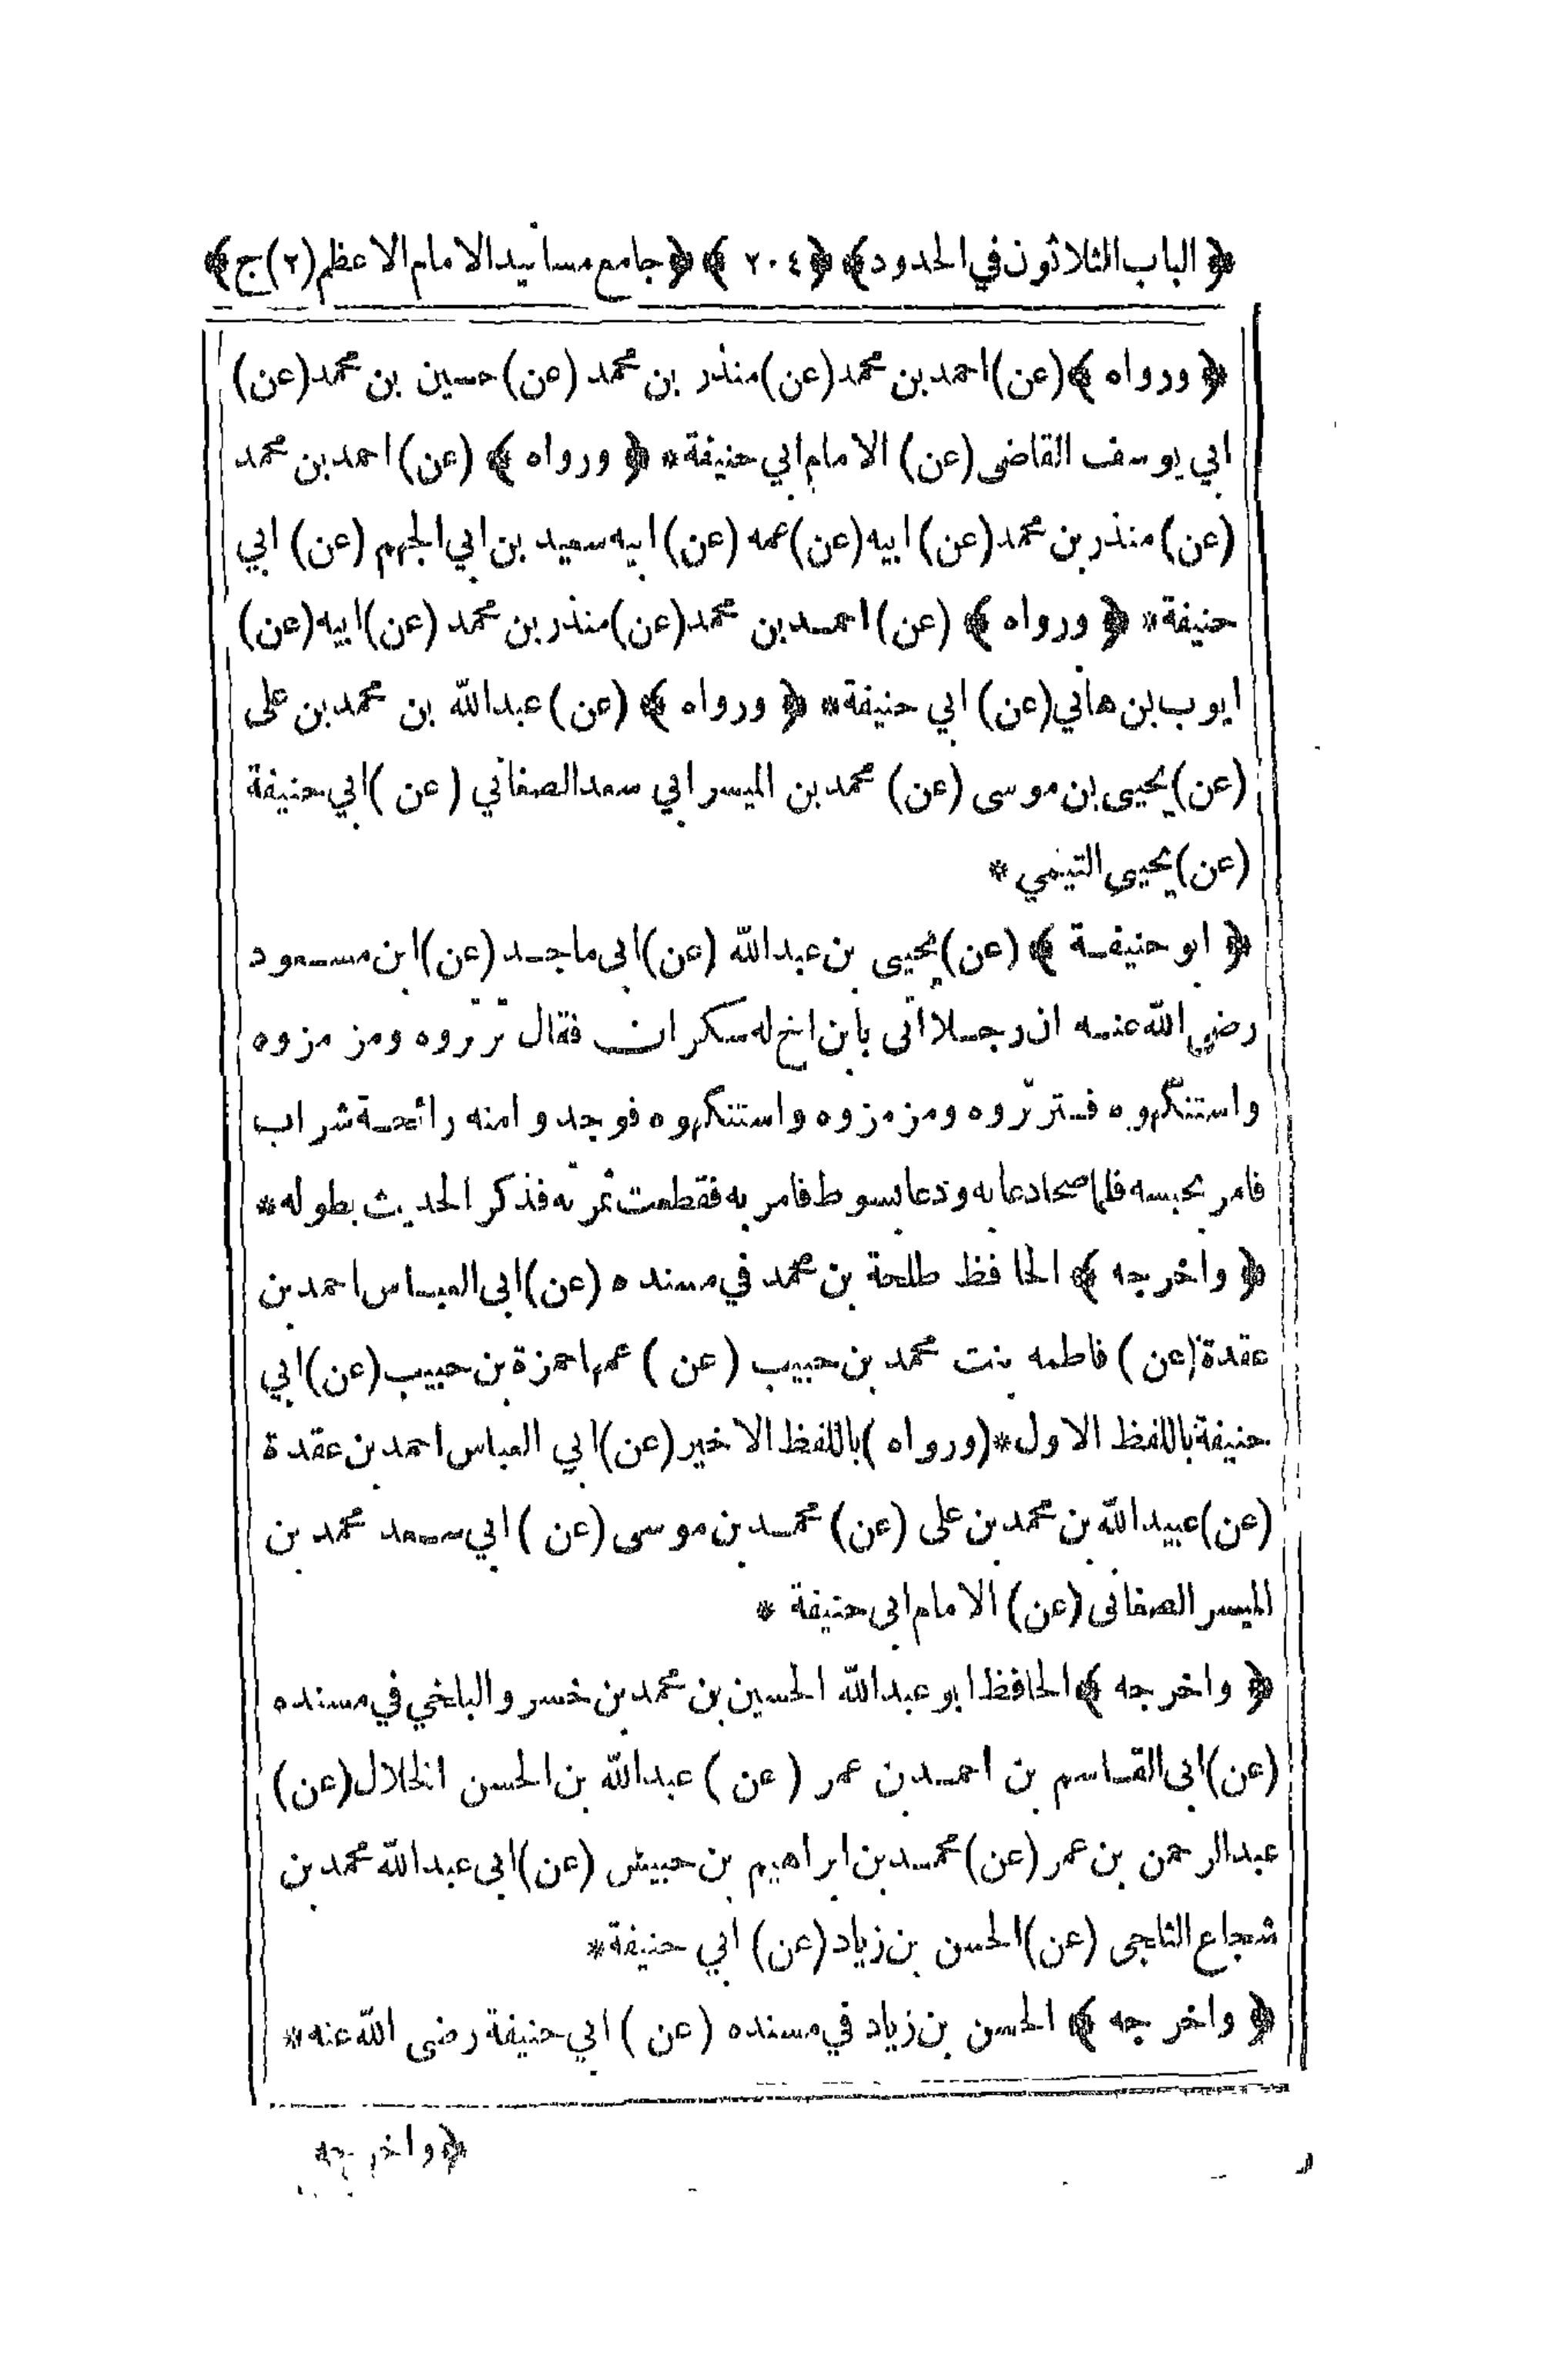 ﴿ الباب الثلاثون في الحدود﴾ ﴿٢٠٤﴾ ﴿جامع مسانيد الامام الاعظم(٢)ج﴾
﴿ ورواه ﴾(عن)احمد بن محمد(عن)منذر بن محمد (عن)حسين بن محمد(عن)
ابي يوسف القاضي(عن) الامام ابي حنيفة* ﴿ ورواه ﴾ (عن)احمد بن محمد
(عن)منذر بن محمد(عن)ابيه(عن)عمه (عن)ابيه سعيد بن ابي الجهم (عن) ابي
حنيفة* ﴿ ورواه ﴾ (عن)احمد بن محمد(عن)منذر بن محمد (عن)ابيه(عن)
ايوب بن هاني(عن) ابي حنيفة* ﴿ ورواه ﴾ (عن)عبدالله بن محمد بن على
(عن)يحيى بن موسى (عن) محمد بن الميسر ابي سعد الصغاني (عن )ابي حنيفة
(عن)يحيى التيمي *
﴿ ابو حنيفة ﴾ (عن)يحيى بن عبدالله (عن)ابى ماجد (عن)ابن مسعود
رضي الله عنه ان رجلا اتى بابن اخ له سكران فقال ترتروه ومز مزوه
واستنكهوه فترتروه ومز مزوه واستنكهوه فوجدوا منه رائحة شراب
فامر بحبسه فلما صحا دعا به ودعا بسوط فامر به فقطعت ثمرته فذكر الحديث بطوله*
﴿ واخرجه ﴾ الحافظ طلحة بن محمد في مسنده (عن)ابى العباس احمد بن
عقدة(عن ) فاطمه بنت محمد بن حبيب (عن ) عمها حمزة بن حبيب(عن)ابي
حنيفة باللفظ الاول*(ورواه )باللفظ الاخير(عن)ابي العباس احمد بن عقدة
(عن)عبيدالله بن محمد بن على (عن) محمد بن موسى (عن )ابي سعد محمد بن
الميسر الصغانى(عن) الامام ابى حنيفة *
﴿ واخرجه ﴾ الحافظ ابو عبدالله الحسين بن محمد بن خسرو البلخي في مسنده
(عن)ابى القاسم بن احمد بن عمر (عن ) عبدالله بن الحسن الخلال(عن)
عبدالرحمن بن عمر (عن)محمد بن ابراهيم بن حبيش (عن)ابى عبدالله محمد بن
شجاع الثلجى (عن)الحسن بن زياد(عن) ابي حنيفة*
﴿ واخرجه ﴾ الحسن بن زياد في مسنده (عن )ابي حنيفة رضى الله عنه*
﴿واخرجه